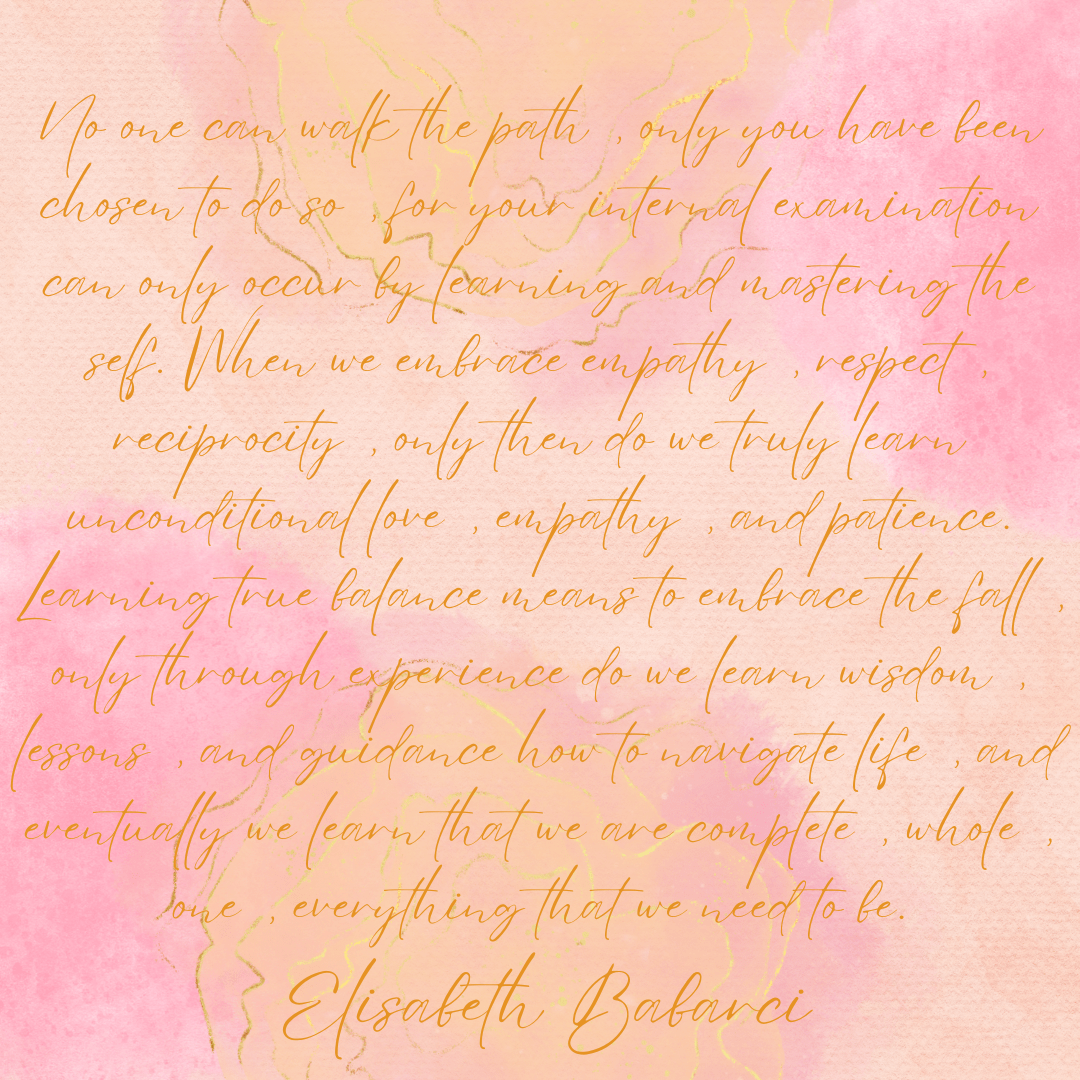 No one can walk the path , only you have been
chosen to do so , for your internal examination
can only occur by learning and mastering the
self. When we embrace empathy , respect ,
reciprocity , only then do we truly learn
unconditional love , empathy , and patience.
Learning true balance means to embrace the fall ,
only through experience do we learn wisdom ,
lessons , and guidance how to navigate life , and
eventually we learn that we are complete , whole ,
one , everything that we need to be.
Elisabeth Babarci